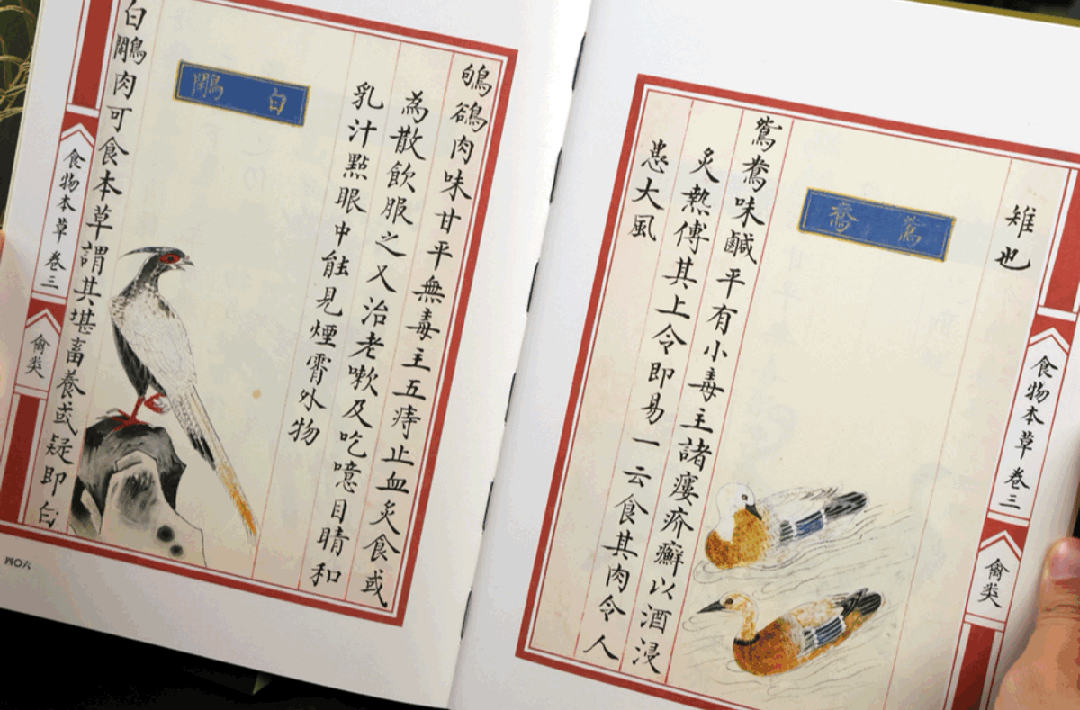 食物本草卷三
禽类
雉也
鴛鴦
鴛鴦味鹹平有小毒主諸瘻疥癬以酒浸
炙熱傅其上令即易一云食其肉令人
患大風
鴝鵒肉味甘平無毒主五痔止血炙食或
為散飲服之又治老嗽及吃噫目睛和
乳汁點眼中能見煙霄外物
白鷴
白鷴肉可食本草謂其堪畜養或疑即白
食物本草卷三
禽类
四〇六